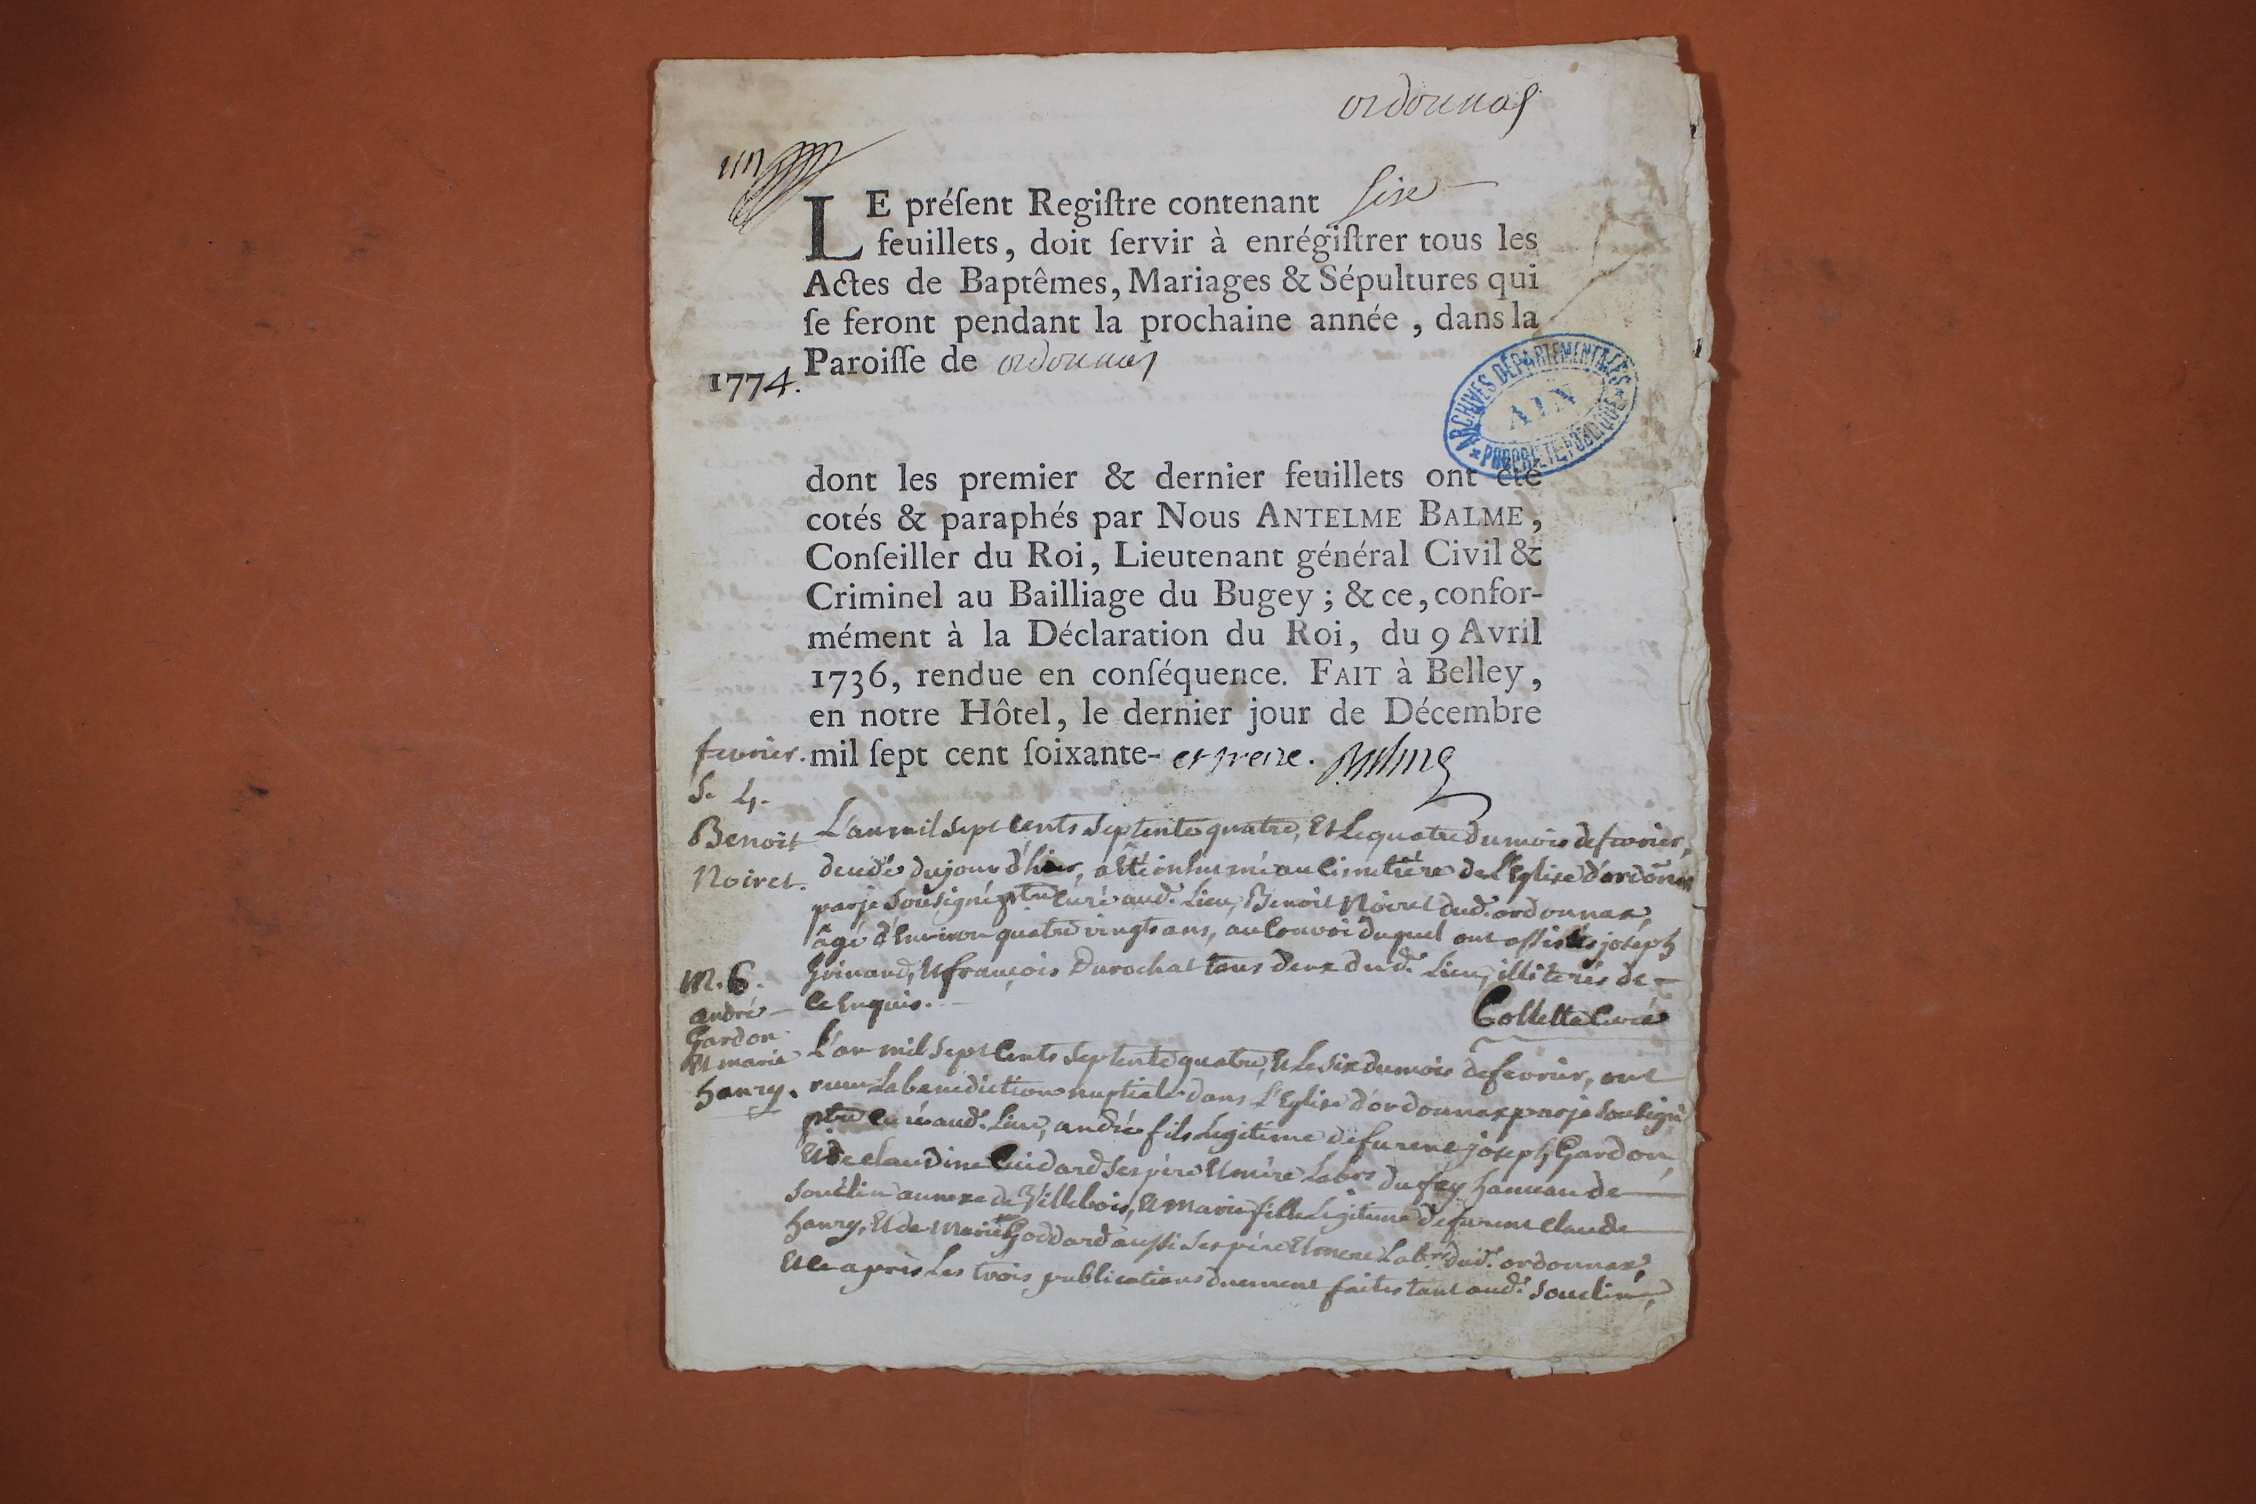 ordonnas
un
LE préſent Regiſtre contenant six
feuillets, doit ſervir à enrégiſtrer tous les
Actes de Baptêmes, Mariages & Sépultures qui
ſe feront pendant la prochaine année, dans la
Paroiſſe de ordonnas
1774.
ARCHIVES DÉPARTEMENTALES
AIN
* PROPRIÉTÉ PUBLIQUE *
dont les premier & dernier feuillets ont été
cotés & paraphés par Nous ANTELME BALME,
Conſeiller du Roi, Lieutenant général Civil &
Criminel au Bailliage du Bugey ; & ce, confor-
mément à la Déclaration du Roi, du 9 Avril
1736, rendue en conſéquence. FAIT à Belley,
en notre Hôtel, le dernier jour de Décembre
mil ſept cent ſoixante- et treize. Balme
fevrier.
S. 4.
Benoit
Noiret.
L'an mil sept cents septente quatre, et le quatre du mois de fevrier,
decedé du jour d'hier, a été inhumé au cimetière de l'Eglise d'ordonnas
par je sousigné ptre curé aud. lieu, Benoit Noiret dud. ordonnax,
âgé d'environ quatre vingts ans, au convoi duquel ont assistés joseph
Grinand, et françois Durochat tous deux dud. lieu, illiterés de
ce enquis.
Collette Curé
M. 6.
andré
Gardon
et marie
hanry.
L'an mil sept cents septente quatre, et le six du mois de fevrier, ont
reçu la benediction nuptiale dans l'Eglise d'ordonnax par je sousigné
ptre curé aud. lieu, andré fils legitime de furent joseph Gardon,
et de claudine Cuidard ses père et mère labrs du fay hameau de
souclin annexe de Villebois, et marie fille legitime de furent claude
hanry, et de Marie Goddard aussi ses père et mere labrs dud. ordonnax,
et ce après les trois publications duement faites tant aud. souclin,